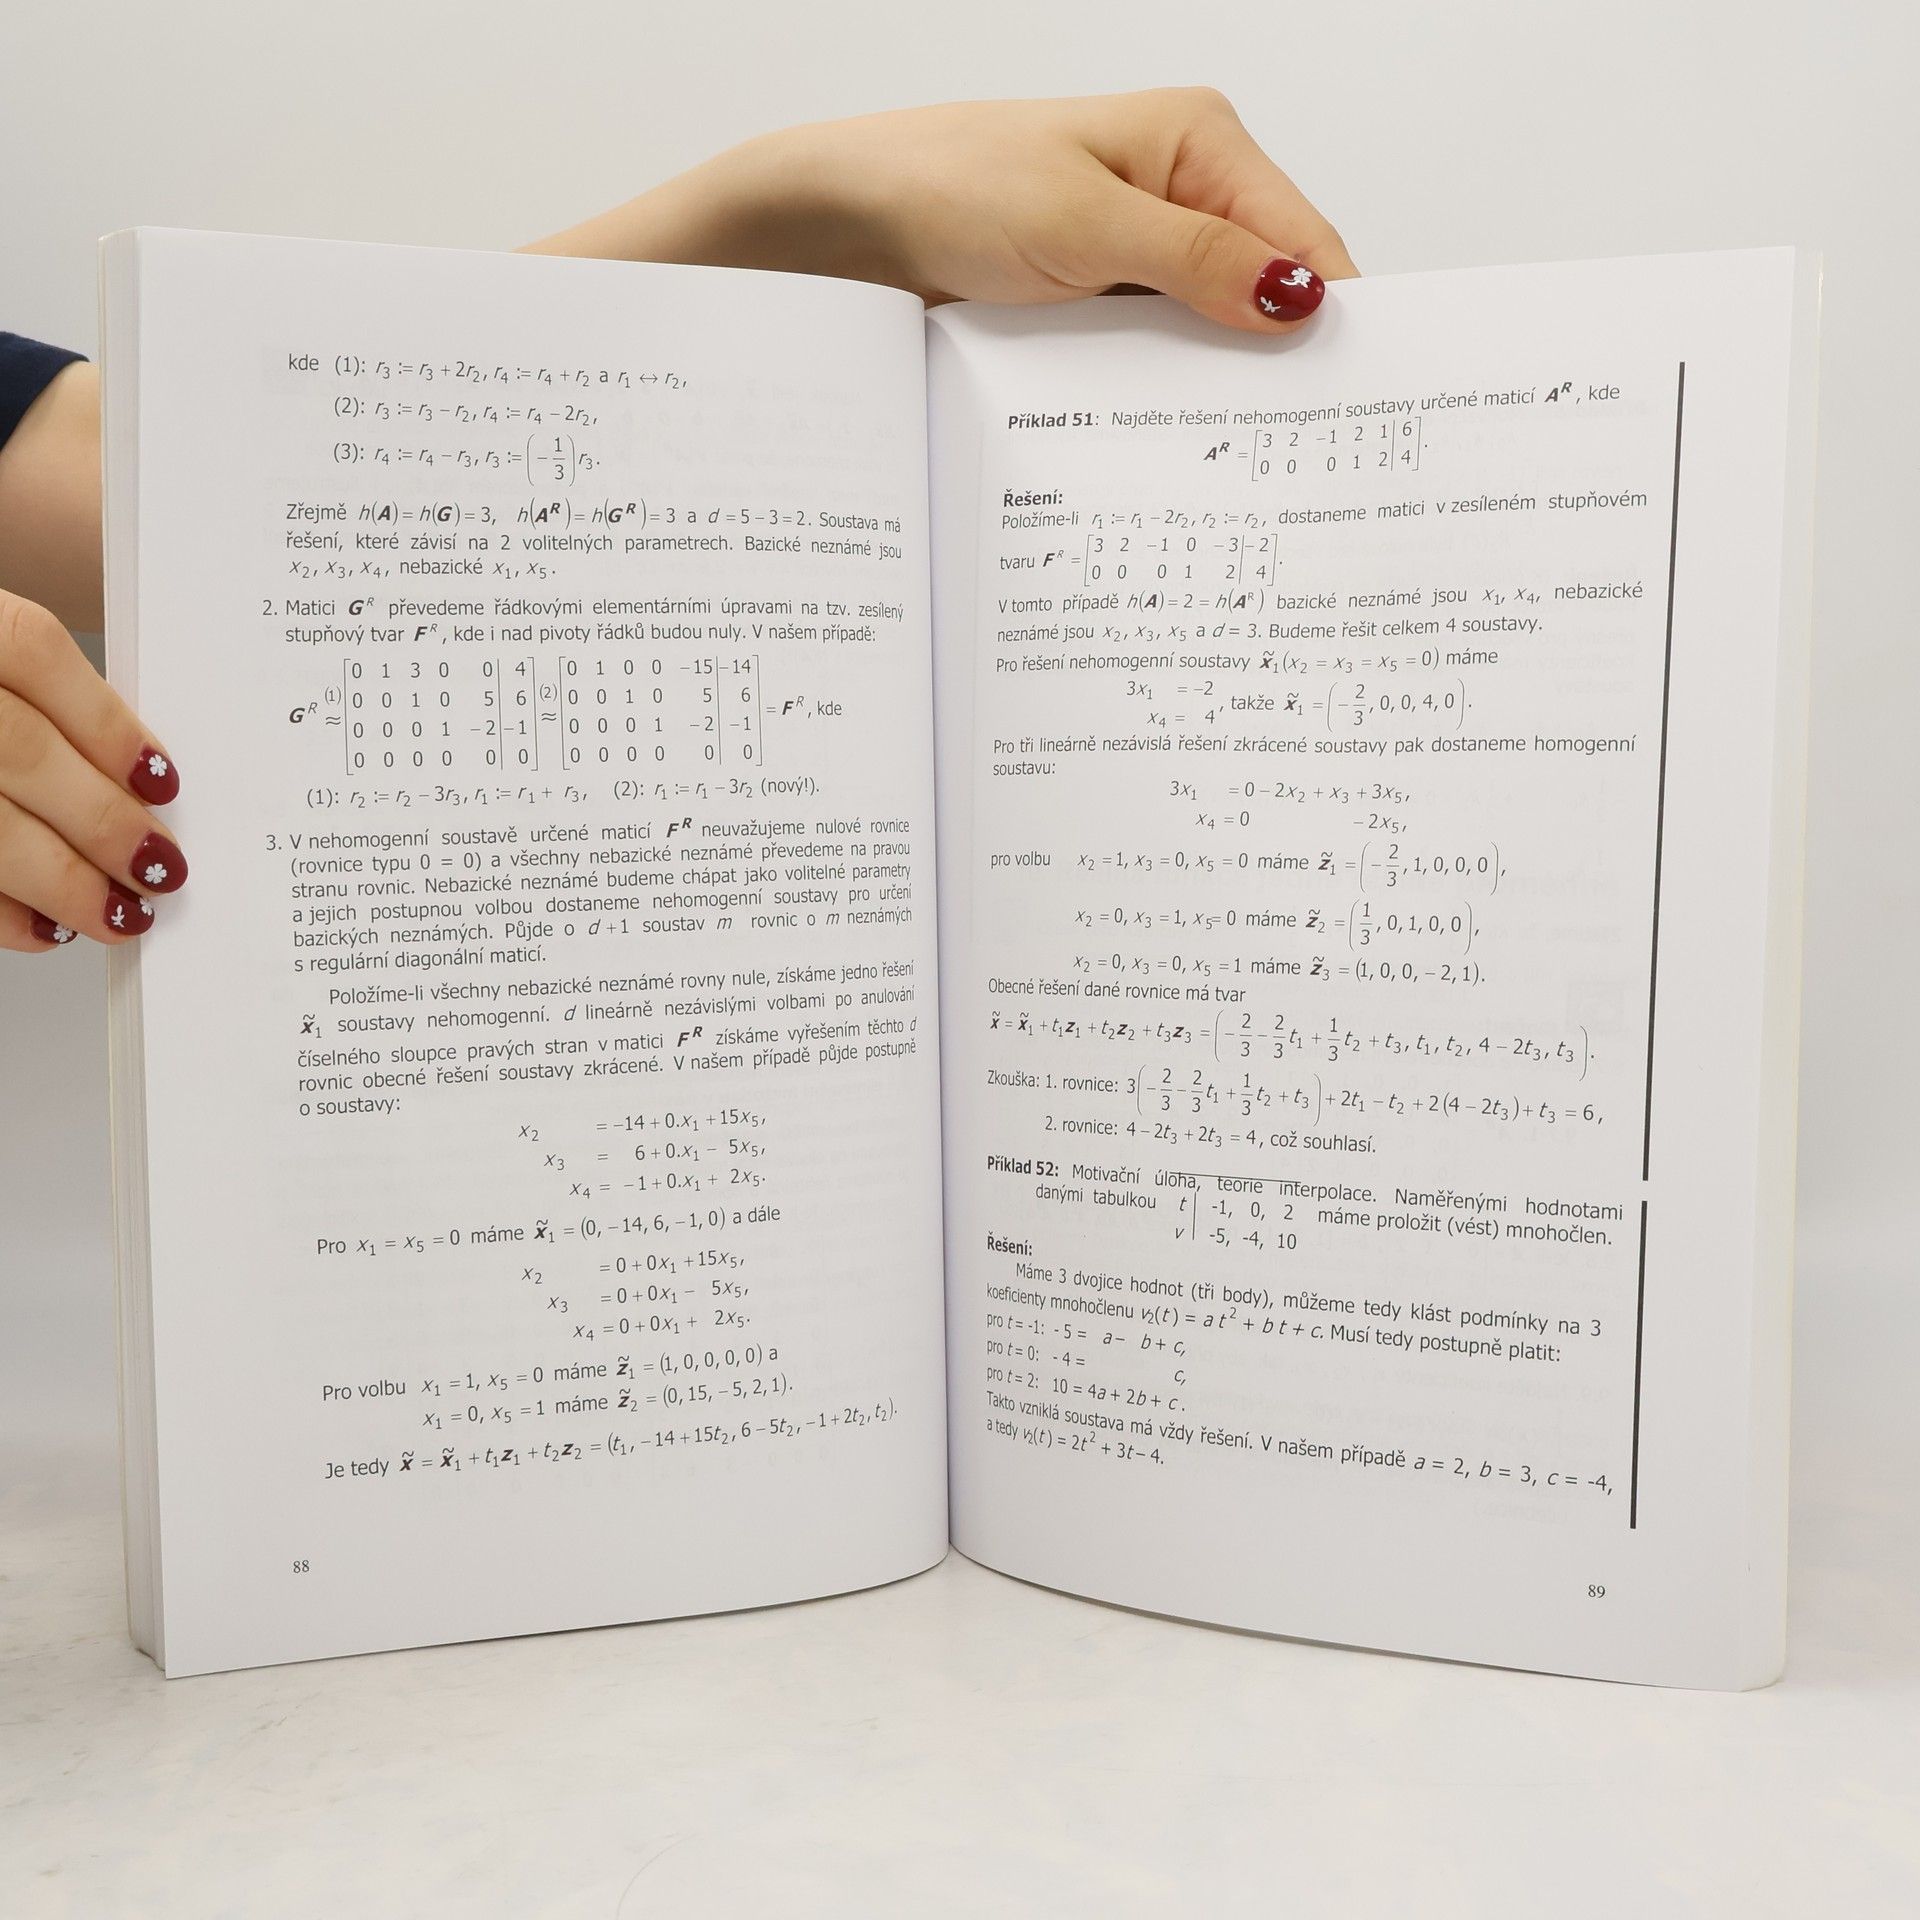 kde (1): r₃ := r₃ + 2r₂, r₄ := r₄ + r₂ a r₁ ↔ r₂,
(2): r₃ := r₃ − r₂, r₄ := r₄ − 2r₂,
(3): r₄ := r₄ − r₃, r₃ := (−1/3) r₃.
Zřejmě h(A) = h(G) = 3, h(Aᴿ) = h(Gᴿ) = 3 a d = 5 − 3 = 2. Soustava má
řešení, které závisí na 2 volitelných parametrech. Bazické neznámé jsou
x₂, x₃, x₄, nebazické x₁, x₅.
2. Matici Gᴿ převedeme řádkovými elementárními úpravami na tzv. zesílený
stupňový tvar Fᴿ, kde i nad pivoty řádků budou nuly. V našem případě:
[0 1 3 0 0 | 4] [0 1 0 0 −15 | −14]
Gᴿ (1)≈ [0 0 1 0 5 | 6] (2)≈ [0 0 1 0 5 | 6] = Fᴿ, kde
[0 0 0 1 −2 | −1] [0 0 0 1 −2 | −1]
[0 0 0 0 0 | 0] [0 0 0 0 0 | 0]
(1): r₂ := r₂ − 3r₃, r₁ := r₁ + r₃, (2): r₁ := r₁ − 3r₂ (nový!).
3. V nehomogenní soustavě určené maticí Fᴿ neuvažujeme nulové rovnice
(rovnice typu 0 = 0) a všechny nebazické neznámé převedeme na pravou
stranu rovnic. Nebazické neznámé budeme chápat jako volitelné parametry
a jejich postupnou volbou dostaneme nehomogenní soustavy pro určení
bazických neznámých. Půjde o d + 1 soustav m rovnic o m neznámých
s regulární diagonální maticí.
Položíme-li všechny nebazické neznámé rovny nule, získáme jedno řešení
x̃₁ soustavy nehomogenní. d lineárně nezávislými volbami po anulování
číselného sloupce pravých stran v matici Fᴿ získáme vyřešením těchto d
rovnic obecné řešení soustavy zkrácené. V našem případě půjde postupně
o soustavy:
x₂ = −14 + 0.x₁ + 15x₅,
x₃ = 6 + 0.x₁ − 5x₅,
x₄ = −1 + 0.x₁ + 2x₅.
Pro x₁ = x₅ = 0 máme x̃₁ = (0, −14, 6, −1, 0) a dále
x₂ = 0 + 0x₁ + 15x₅,
x₃ = 0 + 0x₁ − 5x₅,
x₄ = 0 + 0x₁ + 2x₅.
Pro volbu x₁ = 1, x₅ = 0 máme z̃₁ = (1, 0, 0, 0, 0) a
x₁ = 0, x₅ = 1 máme z̃₂ = (0, 15, −5, 2, 1).
Je tedy x̃ = x̃₁ + t₁z₁ + t₂z₂ = (t₁, −14 + 15t₂, 6 − 5t₂, −1 + 2t₂, t₂).
88
Příklad 51: Najděte řešení nehomogenní soustavy určené maticí Aᴿ, kde
Aᴿ = [3 2 −1 2 1 | 6]
[0 0 0 1 2 | 4].
Řešení:
Položíme-li r₁ := r₁ − 2r₂, r₂ := r₂, dostaneme matici v zesíleném stupňovém
tvaru Fᴿ = [3 2 −1 0 −3 | −2]
[0 0 0 1 2 | 4].
V tomto případě h(A) = 2 = h(Aᴿ) bazické neznámé jsou x₁, x₄, nebazické
neznámé jsou x₂, x₃, x₅ a d = 3. Budeme řešit celkem 4 soustavy.
Pro řešení nehomogenní soustavy x̃₁(x₂ = x₃ = x₅ = 0) máme
3x₁ = −2
x₄ = 4, takže x̃₁ = (−2/3, 0, 0, 4, 0).
Pro tři lineárně nezávislá řešení zkrácené soustavy pak dostaneme homogenní
soustavu:
3x₁ = 0 − 2x₂ + x₃ + 3x₅,
x₄ = 0 − 2x₅,
pro volbu x₂ = 1, x₃ = 0, x₅ = 0 máme z̃₁ = (−2/3, 1, 0, 0, 0),
x₂ = 0, x₃ = 1, x₅= 0 máme z̃₂ = (1/3, 0, 1, 0, 0),
x₂ = 0, x₃ = 0, x₅ = 1 máme z̃₃ = (1, 0, 0, −2, 1).
Obecné řešení dané rovnice má tvar
x̃ = x̃₁ + t₁z₁ + t₂z₂ + t₃z₃ = (−2/3 − 2/3 t₁ + 1/3 t₂ + t₃, t₁, t₂, 4 − 2t₃, t₃).
Zkouška: 1. rovnice: 3(−2/3 − 2/3 t₁ + 1/3 t₂ + t₃) + 2t₁ − t₂ + 2(4 − 2t₃) + t₃ = 6,
2. rovnice: 4 − 2t₃ + 2t₃ = 4, což souhlasí.
Příklad 52: Motivační úloha, teorie interpolace. Naměřenými hodnotami
danými tabulkou t | -1, 0, 2 máme proložit (vést) mnohočlen.
v | -5, -4, 10
Řešení:
Máme 3 dvojice hodnot (tři body), můžeme tedy klást podmínky na 3
koeficienty mnohočlenu v₂(t) = a t² + b t + c. Musí tedy postupně platit:
pro t = -1: - 5 = a − b + c,
pro t = 0: - 4 = c,
pro t = 2: 10 = 4a + 2b + c.
Takto vzniklá soustava má vždy řešení. V našem případě a = 2, b = 3, c = -4,
a tedy v₂(t) = 2t² + 3t − 4.
89